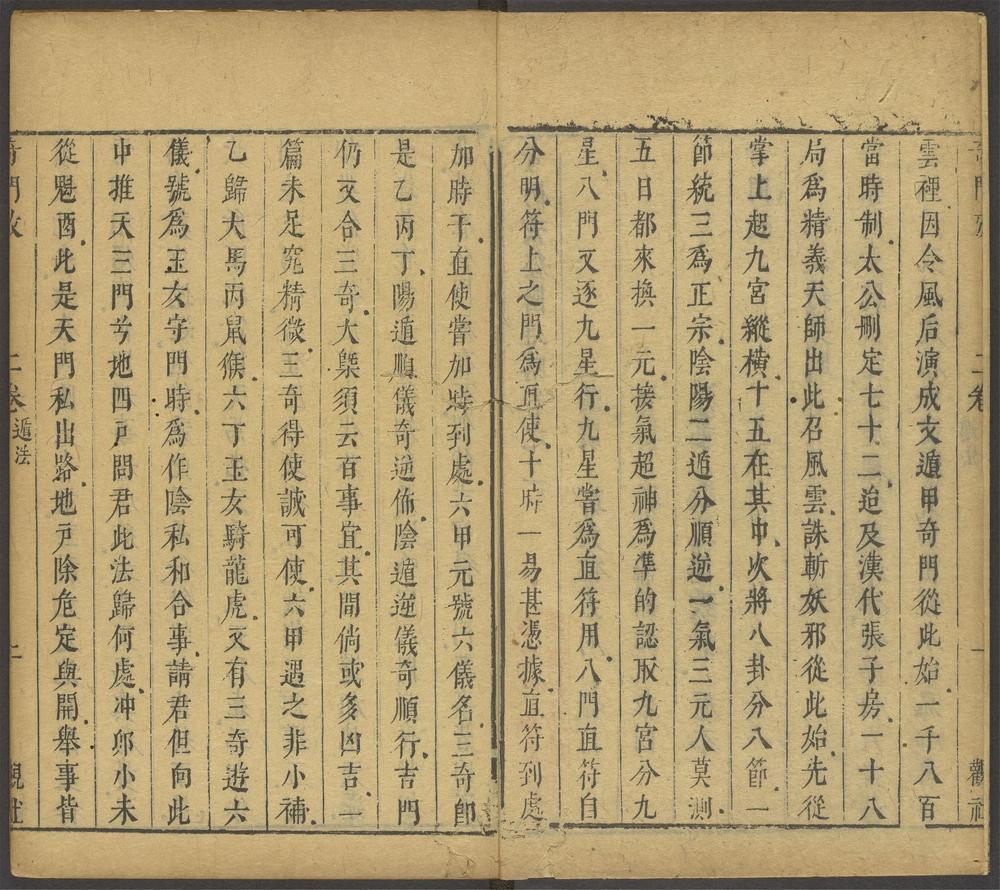 雲裡因令風后演成文遁甲奇門從此始一千八百
當時制太公刪定七十二迨及漢代張子房一十八
局爲精義天師出此召風雲誅斬妖邪從此始先從
掌上起九宮縱橫十五在其中次將八卦分八節一
節統三爲正宗陰陽二遁分順逆一氣三元人莫測
五日都來換一元接氣超神爲準的認取九宮分九
星八門又逐九星行九星嘗爲直符用八門直符自
分明符上之門爲直使十時一易甚憑據直符到處
加時干直使嘗加時到處六甲元號六儀名三奇即
是乙丙丁陽遁順儀奇逆佈陰遁逆儀奇順行吉門
仍又合三奇大槩須云百事宜其間倘或多凶吉一
篇未足究精微三奇得使誠可使六甲遇之非小補
乙歸犬馬丙鼠猴六丁玉女騎龍虎又有三奇遊六
儀號爲玉女守門時爲作陰私和合事請君但向此
中推天三門兮地四戸問君此法歸何處冲郎小未
從魁酉此是天門私出路地戸除危定與開舉事皆
二卷 遁法